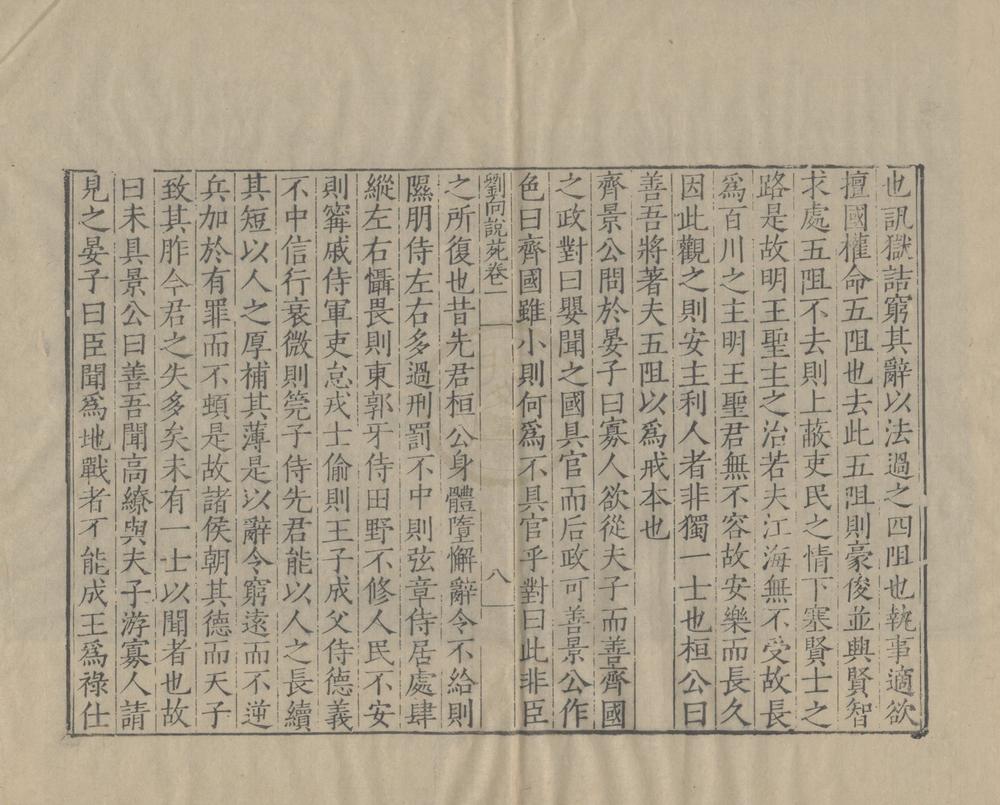 也訊獄詰窮其辭以法過之四阻也執事適欲
擅國權命五阻也去此五阻則豪俊並興賢智
求處五阻不去則上蔽吏民之情下塞賢士之
路是故明王聖主之治若夫江海無不受故長
爲百川之主明王聖君無不容故安樂而長久
因此觀之則安主利人者非獨一士也桓公曰
善吾將著夫五阻以爲戒本也
齊景公問於晏子曰寡人欲從夫子而善齊國
之政對曰嬰聞之國具官而后政可善景公作
色曰齊國雖小則何爲不具官乎對曰此非臣
劉向說苑卷一 八
之所復也昔先君桓公身體墮懈辭令不給則
隰朋侍左右多過刑罰不中則弦章侍居處肆
縱左右懾畏則東郭牙侍田野不修人民不安
則甯戚侍軍吏怠戎士偷則王子成父侍德義
不中信行衰微則筦子侍先君能以人之長續
其短以人之厚補其薄是以辭令窮遠而不逆
兵加於有罪而不頓是故諸侯朝其德而天子
致其胙今君之失多矣未有一士以聞者也故
曰未具景公曰善吾聞高繚與夫子游寡人請
見之晏子曰臣聞爲地戰者不能成王爲祿仕